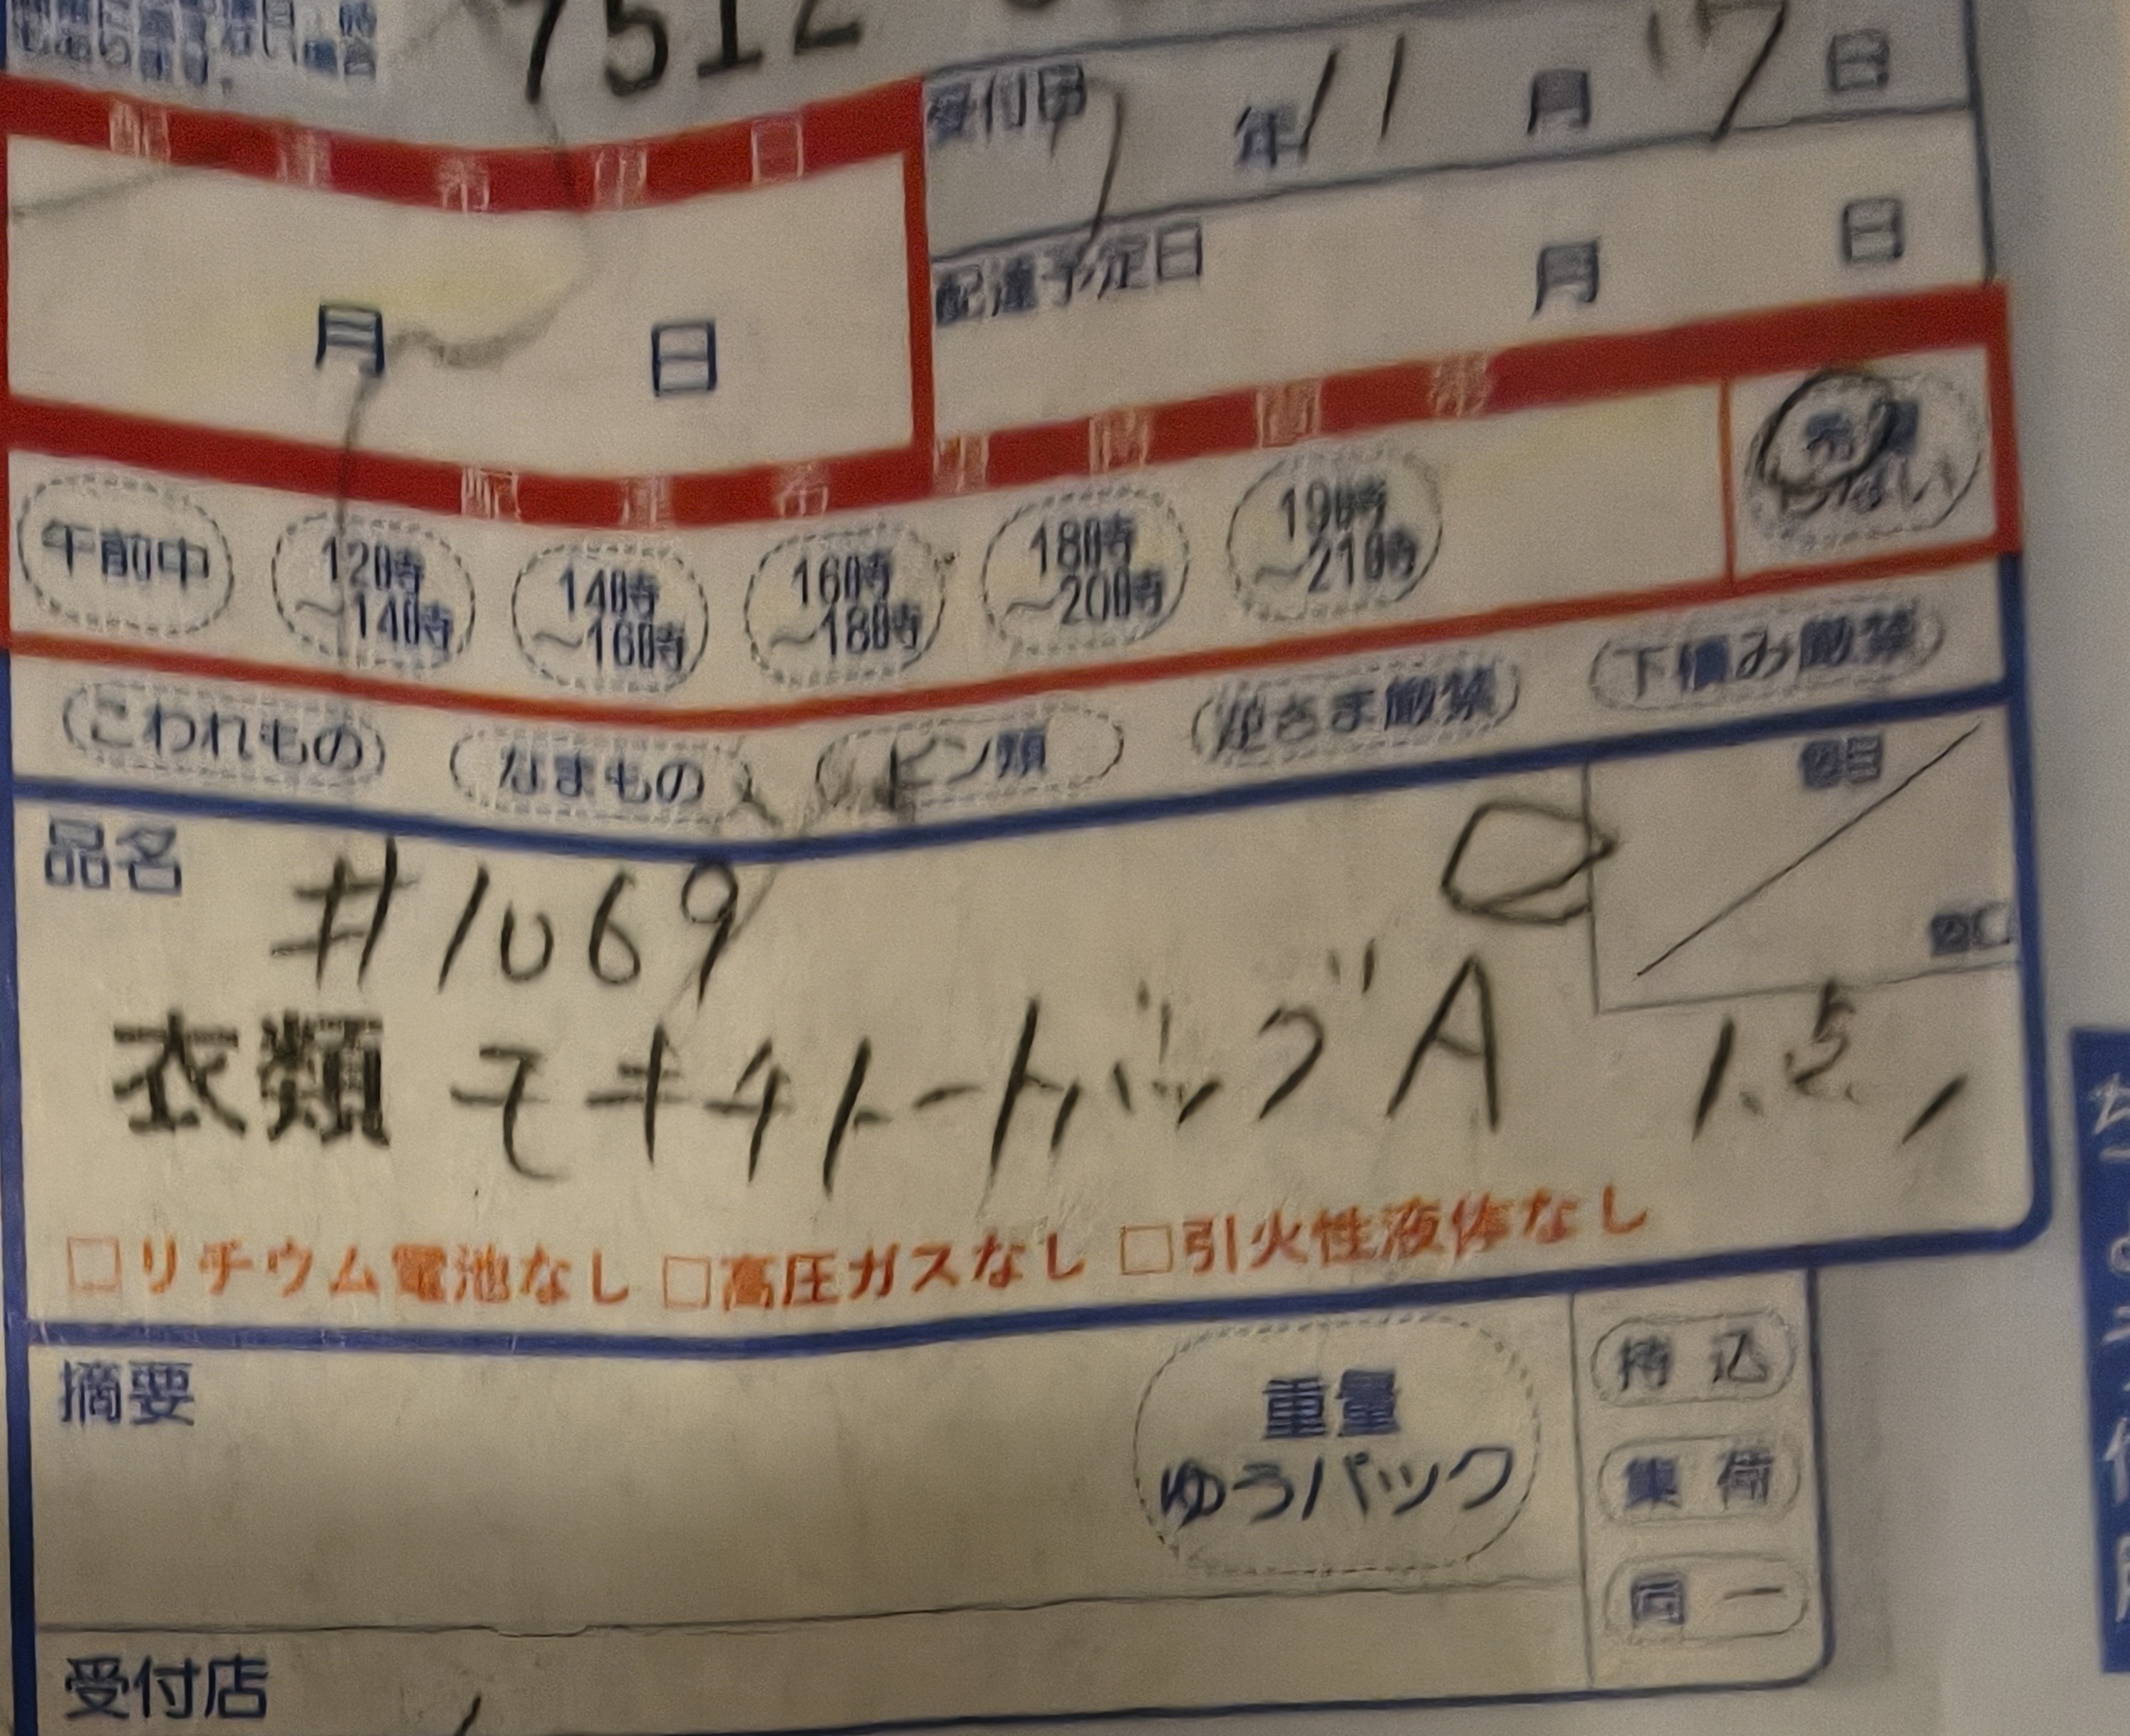 7512
受付日 7年11月17日
配達希望日
月 日
配達予定日 月 日
配達希望時間帯
午前中 12時～14時 14時～16時 16時～18時 18時～20時 19時～21時 希望しない
こわれもの なまもの ビン類 逆さま厳禁 下積み厳禁
品名 #1069
個目
個口
衣類 モキチトートバッグA
□リチウム電池なし □高圧ガスなし □引火性液体なし
摘要
重量
ゆうパック
持込
集荷
同一
受付店